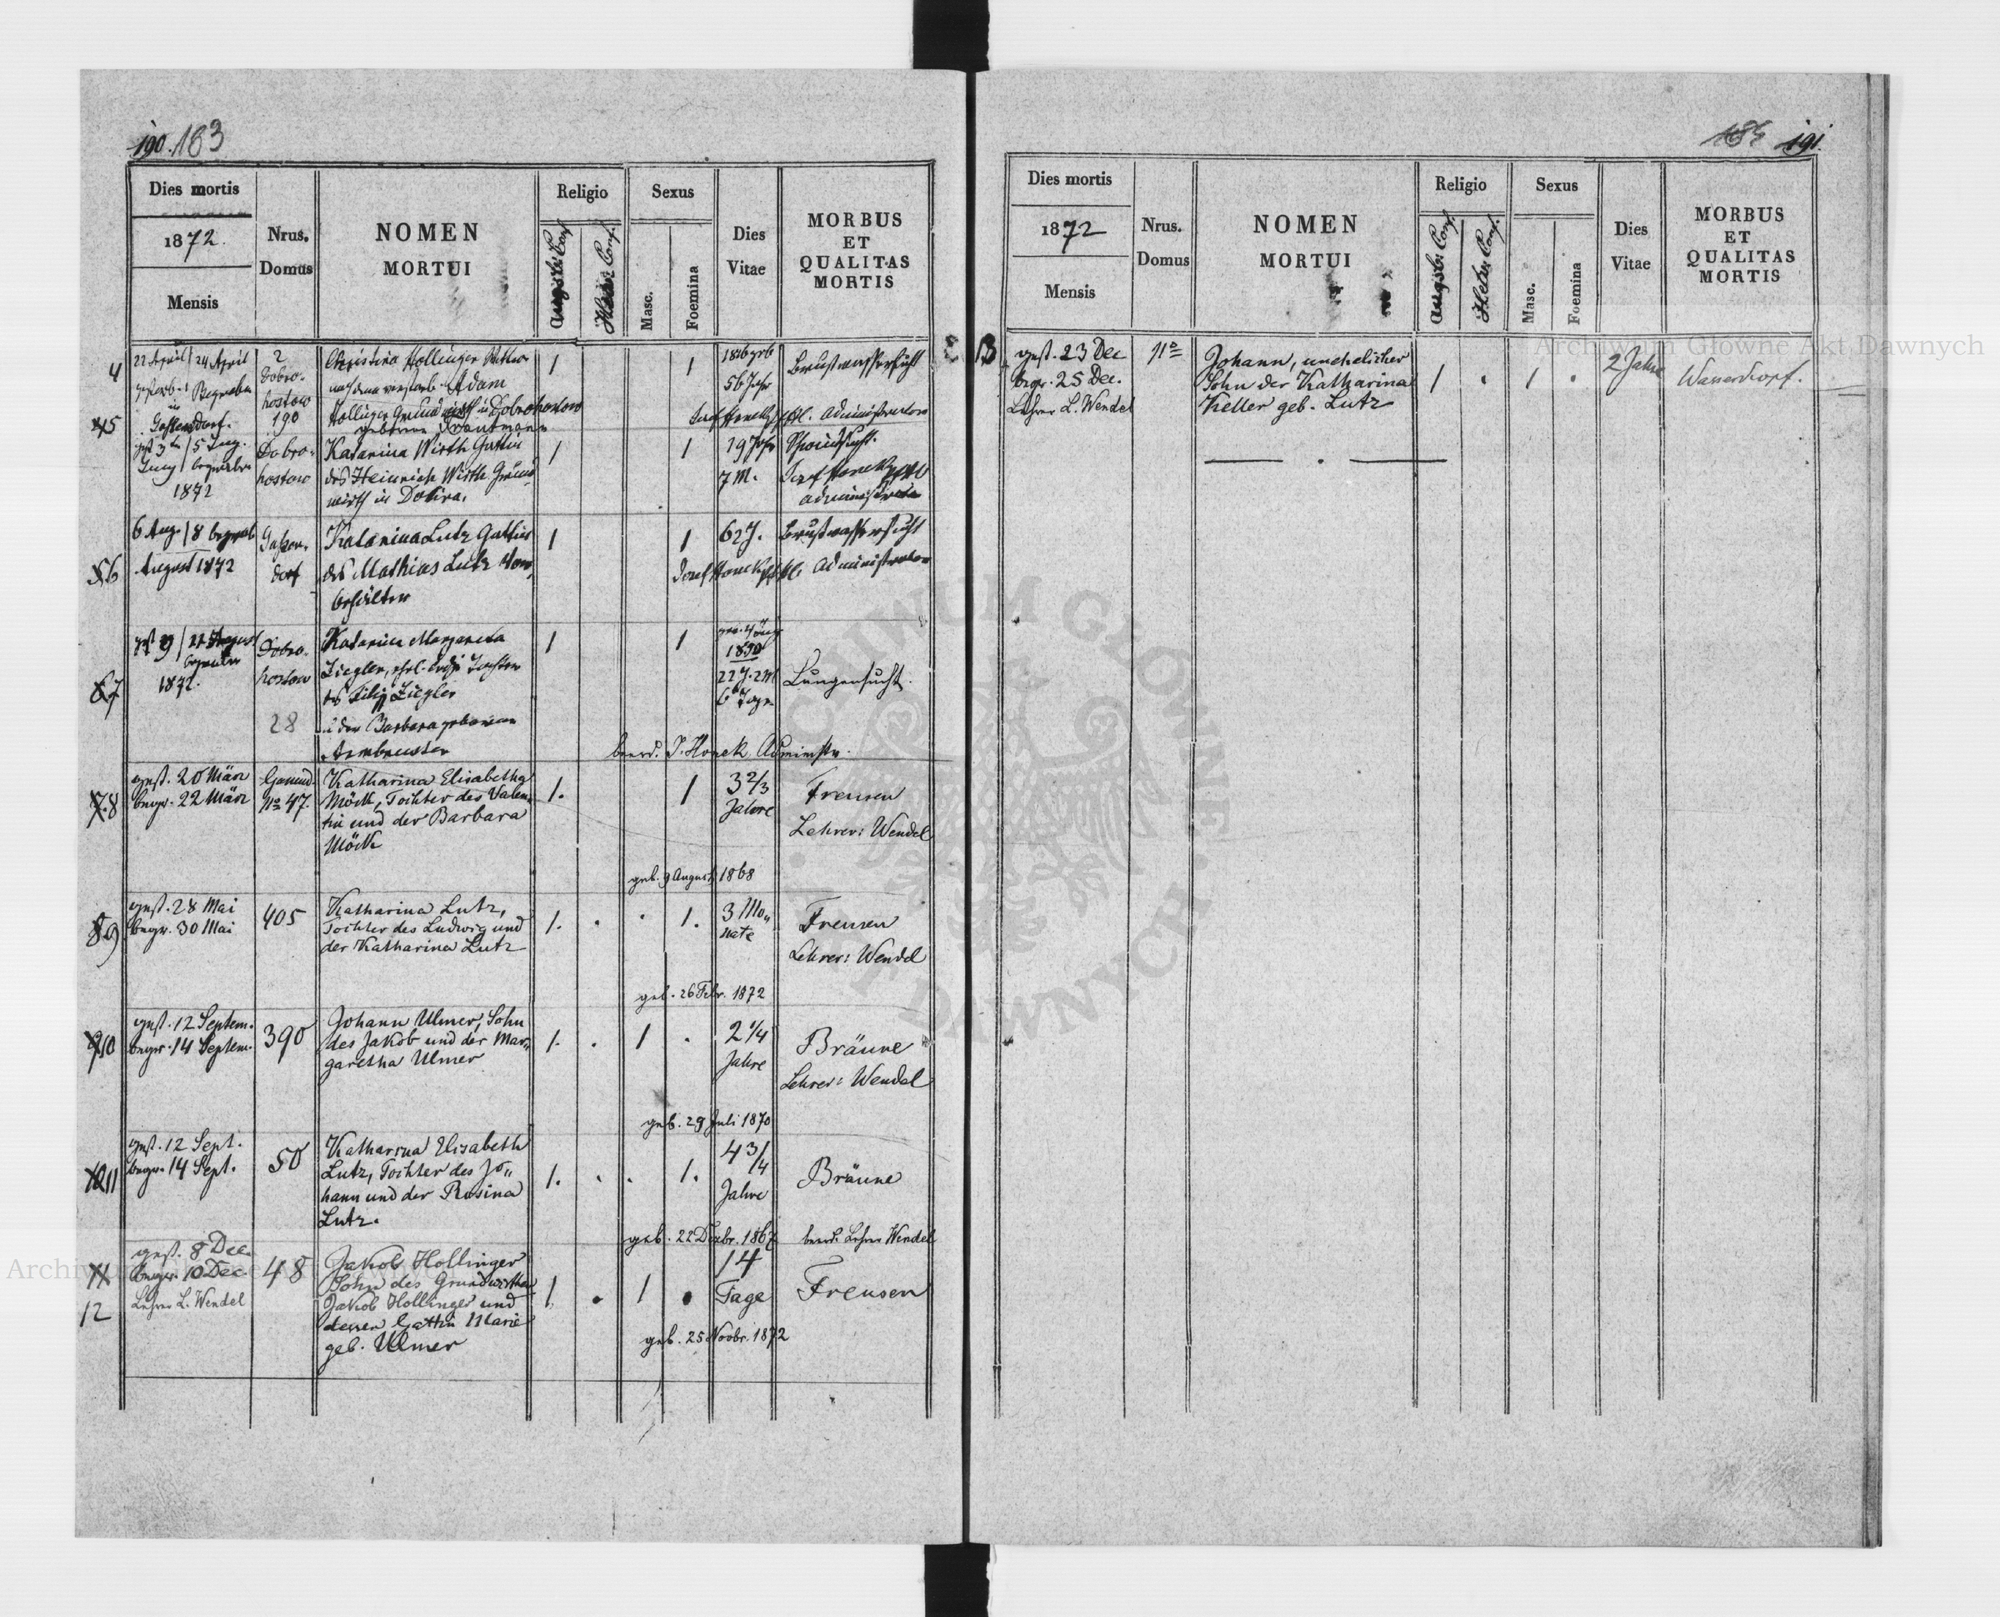 190. 183
Dies mortis
1872.
Mensis
Nrus. Domus
NOMEN
MORTUI
Religio
Augsb. Conf.
Helv. Conf.
Sexus
Masc.
Foemina
Dies
Vitae
MORBUS
ET
QUALITAS
MORTIS
4
22 April / 24 April
Begraben
in
Gassendorf.
2
Dobro-
hostow
190
Christina Hollinger Witwe
nach dem verstorb. Adam
Hollinger Grundwirth in Dobrohostow
geborene Trautmann
1
1
1816 geb
56 Jahr
Brustwassersucht
Josef Honek Administrator
5
gest 3ten / 5 Juny
Juny begraben
1872
Dobro-
hostow
Katarina Wirth Gattin
des Heinrich Wirth Grund
wirth in Dobra.
1
1
19 Jahr
7 M.
Schwindsucht.
Josef Honek
Administrator
6
6 Aug. / 8 begrab
August 1872
Gassen-
dorf
Katarina Lutz Gattin
des Mathias Lutz
1
1
62 J.
Brustwassersucht
Josef Honek Administrator
7
gest 9 / 11 August
begraben
1872.
Dobro-
hostow
28
Katarina Margareta
Ziegler, Tochter
des Filipp Ziegler
u der Barbara geborenen
Armbruster
1
1
1850
22 J. 2 M
6 Tage
Lungensucht.
beerd. J. Honek Adminstr.
8
gest. 20 März
begr. 22 März
No 47.
Katharina Elisabetha
Möck, Tochter des Valen-
tin und der Barbara
Möck
1.
1
3 2/3
Jahre
Freusen
Lehrer: Wendel
geb. 9 August 1868
9
gest. 28 Mai
begr. 30 Mai
405
Katharina Lutz,
Tochter des Ludwig und
der Katharina Lutz
1.
1.
3 Mo-
nate
Freusen
Lehrer: Wendel
geb. 26 Febr. 1872
10
gest. 12 Septem.
begr. 14 Septem.
390
Johann Ulmer, Sohn
des Jakob und der Mar-
garetha Ulmer
1.
1
2 1/4
Jahre
Bräune
Lehrer: Wendel
geb. 29 Juli 1870
11
gest. 12 Sept.
begr. 14 Sept.
50
Katharina Elisabeth
Lutz, Tochter des Jo-
hann und der Rosina
Lutz.
1.
1.
4 3/4
Jahre
Bräune
geb. 22 Dezbr. 1867
beerd. Lehrer Wendel
11
12
gest. 8 Dec.
begr. 10 Dec.
Lehrer L. Wendel
48
Jakob Hollinger
Sohn des Grundwirthen
Jakob Hollinger und
dessen Gattin Marie
geb. Ulmer
1
1
14
Tage
Freusen
geb. 25 Novbr. 1872
191.
Dies mortis
1872
Mensis
Nrus.
Domus
NOMEN
MORTUI
Religio
Augsb. Conf.
Helv. Conf.
Sexus
Masc.
Foemina
Dies
Vitae
MORBUS
ET
QUALITAS
MORTIS
13
gest. 23 Dec
begr. 25 Dec.
Lehrer L. Wendel
Johann, unehelicher
Sohn der Katharina
Keller geb. Lutz
1
1
2 Jahre
Wasserkopf.
Archiwum Główne Akt Dawnych
Archiwum Główne Akt Dawnych
ARCHIWUM GŁÓWNE AKT DAWNYCH